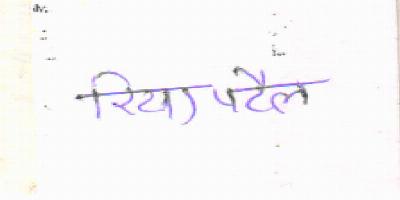 रिया पटैल